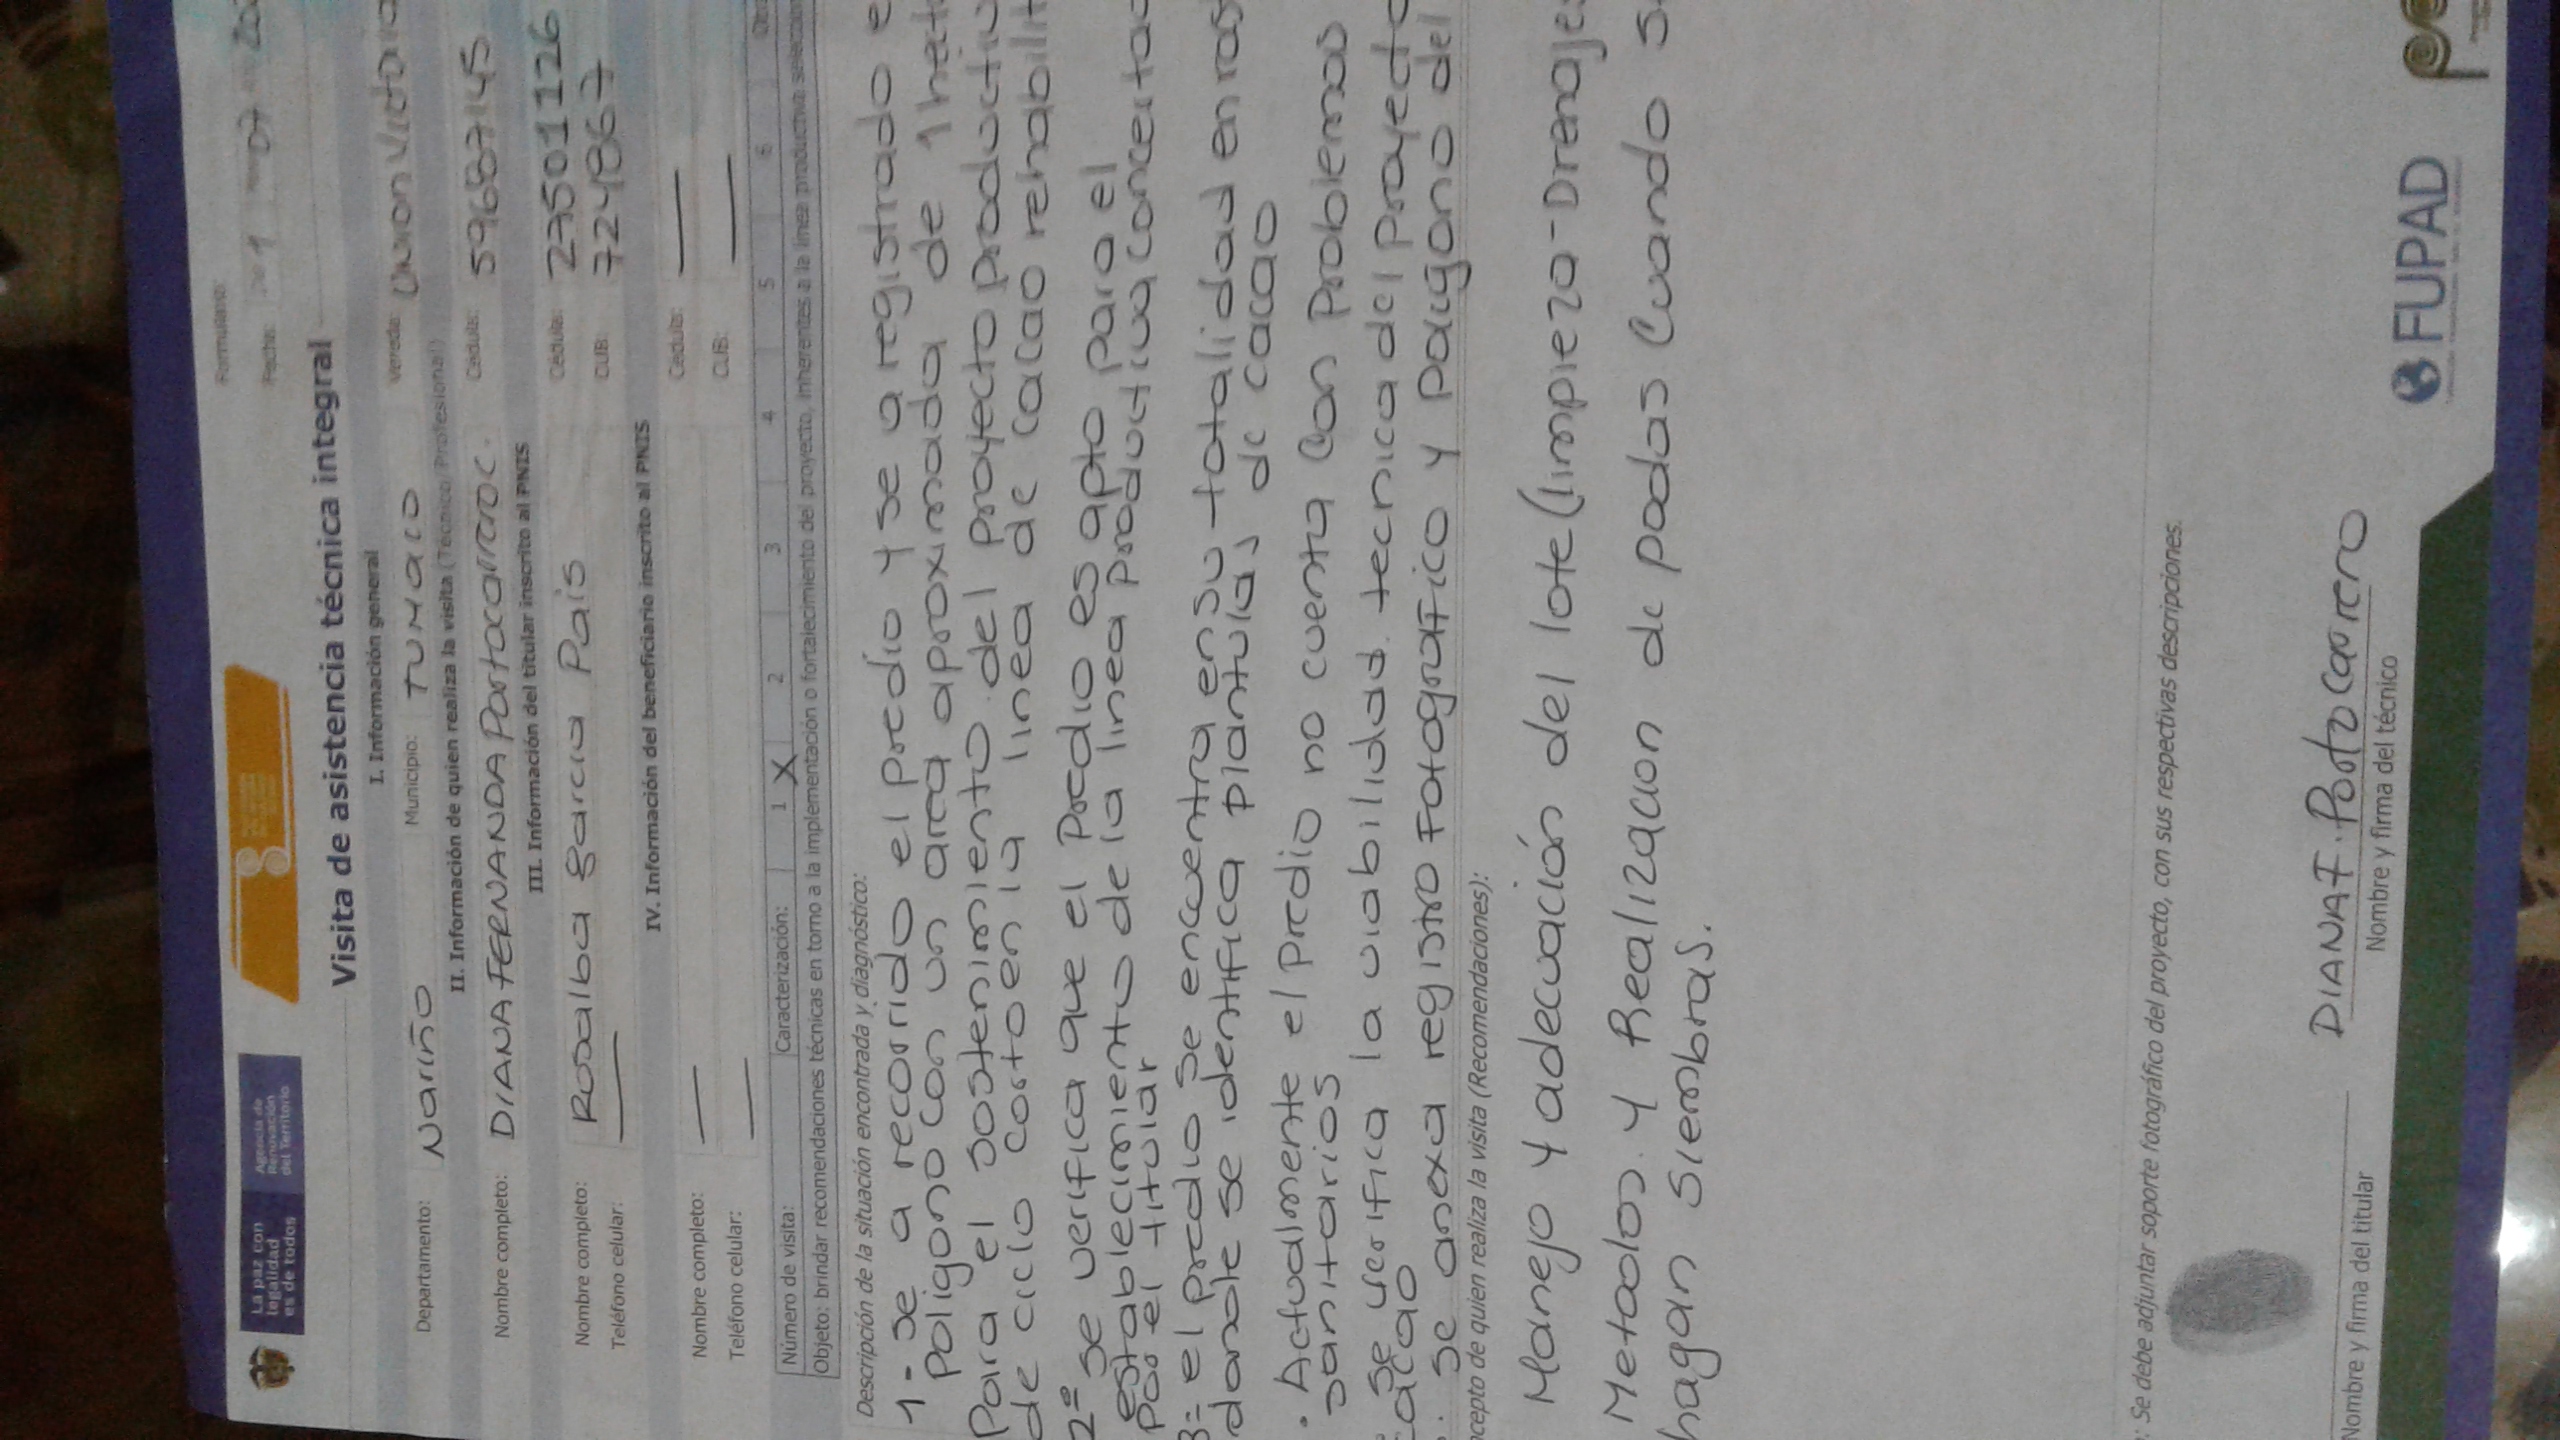 La paz con
legalidad
es de todos
Agencia de
Renovación
del Territorio
Formulario:
Fecha: 07
Visita de asistencia técnica integral
I. Información general
Departamento: Nariño Municipio: TUMACO Vereda: Union Victoria
II. Información de quien realiza la visita (Técnico/Profesional)
Nombre completo: DIANA FERNANDA Portocarrero C. Cédula: 59687145
III. Información del titular inscrito al PNIS
Nombre completo: Rosalba garcia Pais Cédula: 27501126
Teléfono celular: — CUB: 724867
IV. Información del beneficiario inscrito al PNIS
Nombre completo: — Cédula: —
Teléfono celular: — CUB: —
Número de visita: Caracterización: 1 X 2 3 4 5 6
Objeto: brindar recomendaciones técnicas en torno a la implementación o fortalecimiento del proyecto, inherentes a la línea productiva
Descripción de la situación encontrada y diagnóstico:
1- se a recorrido el predio y se a registrado
Poligono con un area aproximada de 1
Para el sostenimiento del proyecto
de ciclo corto en la linea de cacao
2= se verifica que el Predio es apto para el
establecimiento de la linea productiva
por el titular
3= el predio se encuentra en su totalidad en
donde se identifica plantulas de cacao
• Actualmente el predio no cuenta con problemas
sanitarios
se verifica la viabilidad tecnica del proyecto
cacao
. se anexa registro fotografico y poligono del
de quien realiza la visita (Recomendaciones):
Manejo y adecuación del lote (limpieza-Drenajes
Metodos y Realizacion de podas Cuando
hagan siembras.
: Se debe adjuntar soporte fotográfico del proyecto, con sus respectivas descripciones.
DIANA F. Portocarrero
Nombre y firma del titular Nombre y firma del técnico
FUPAD